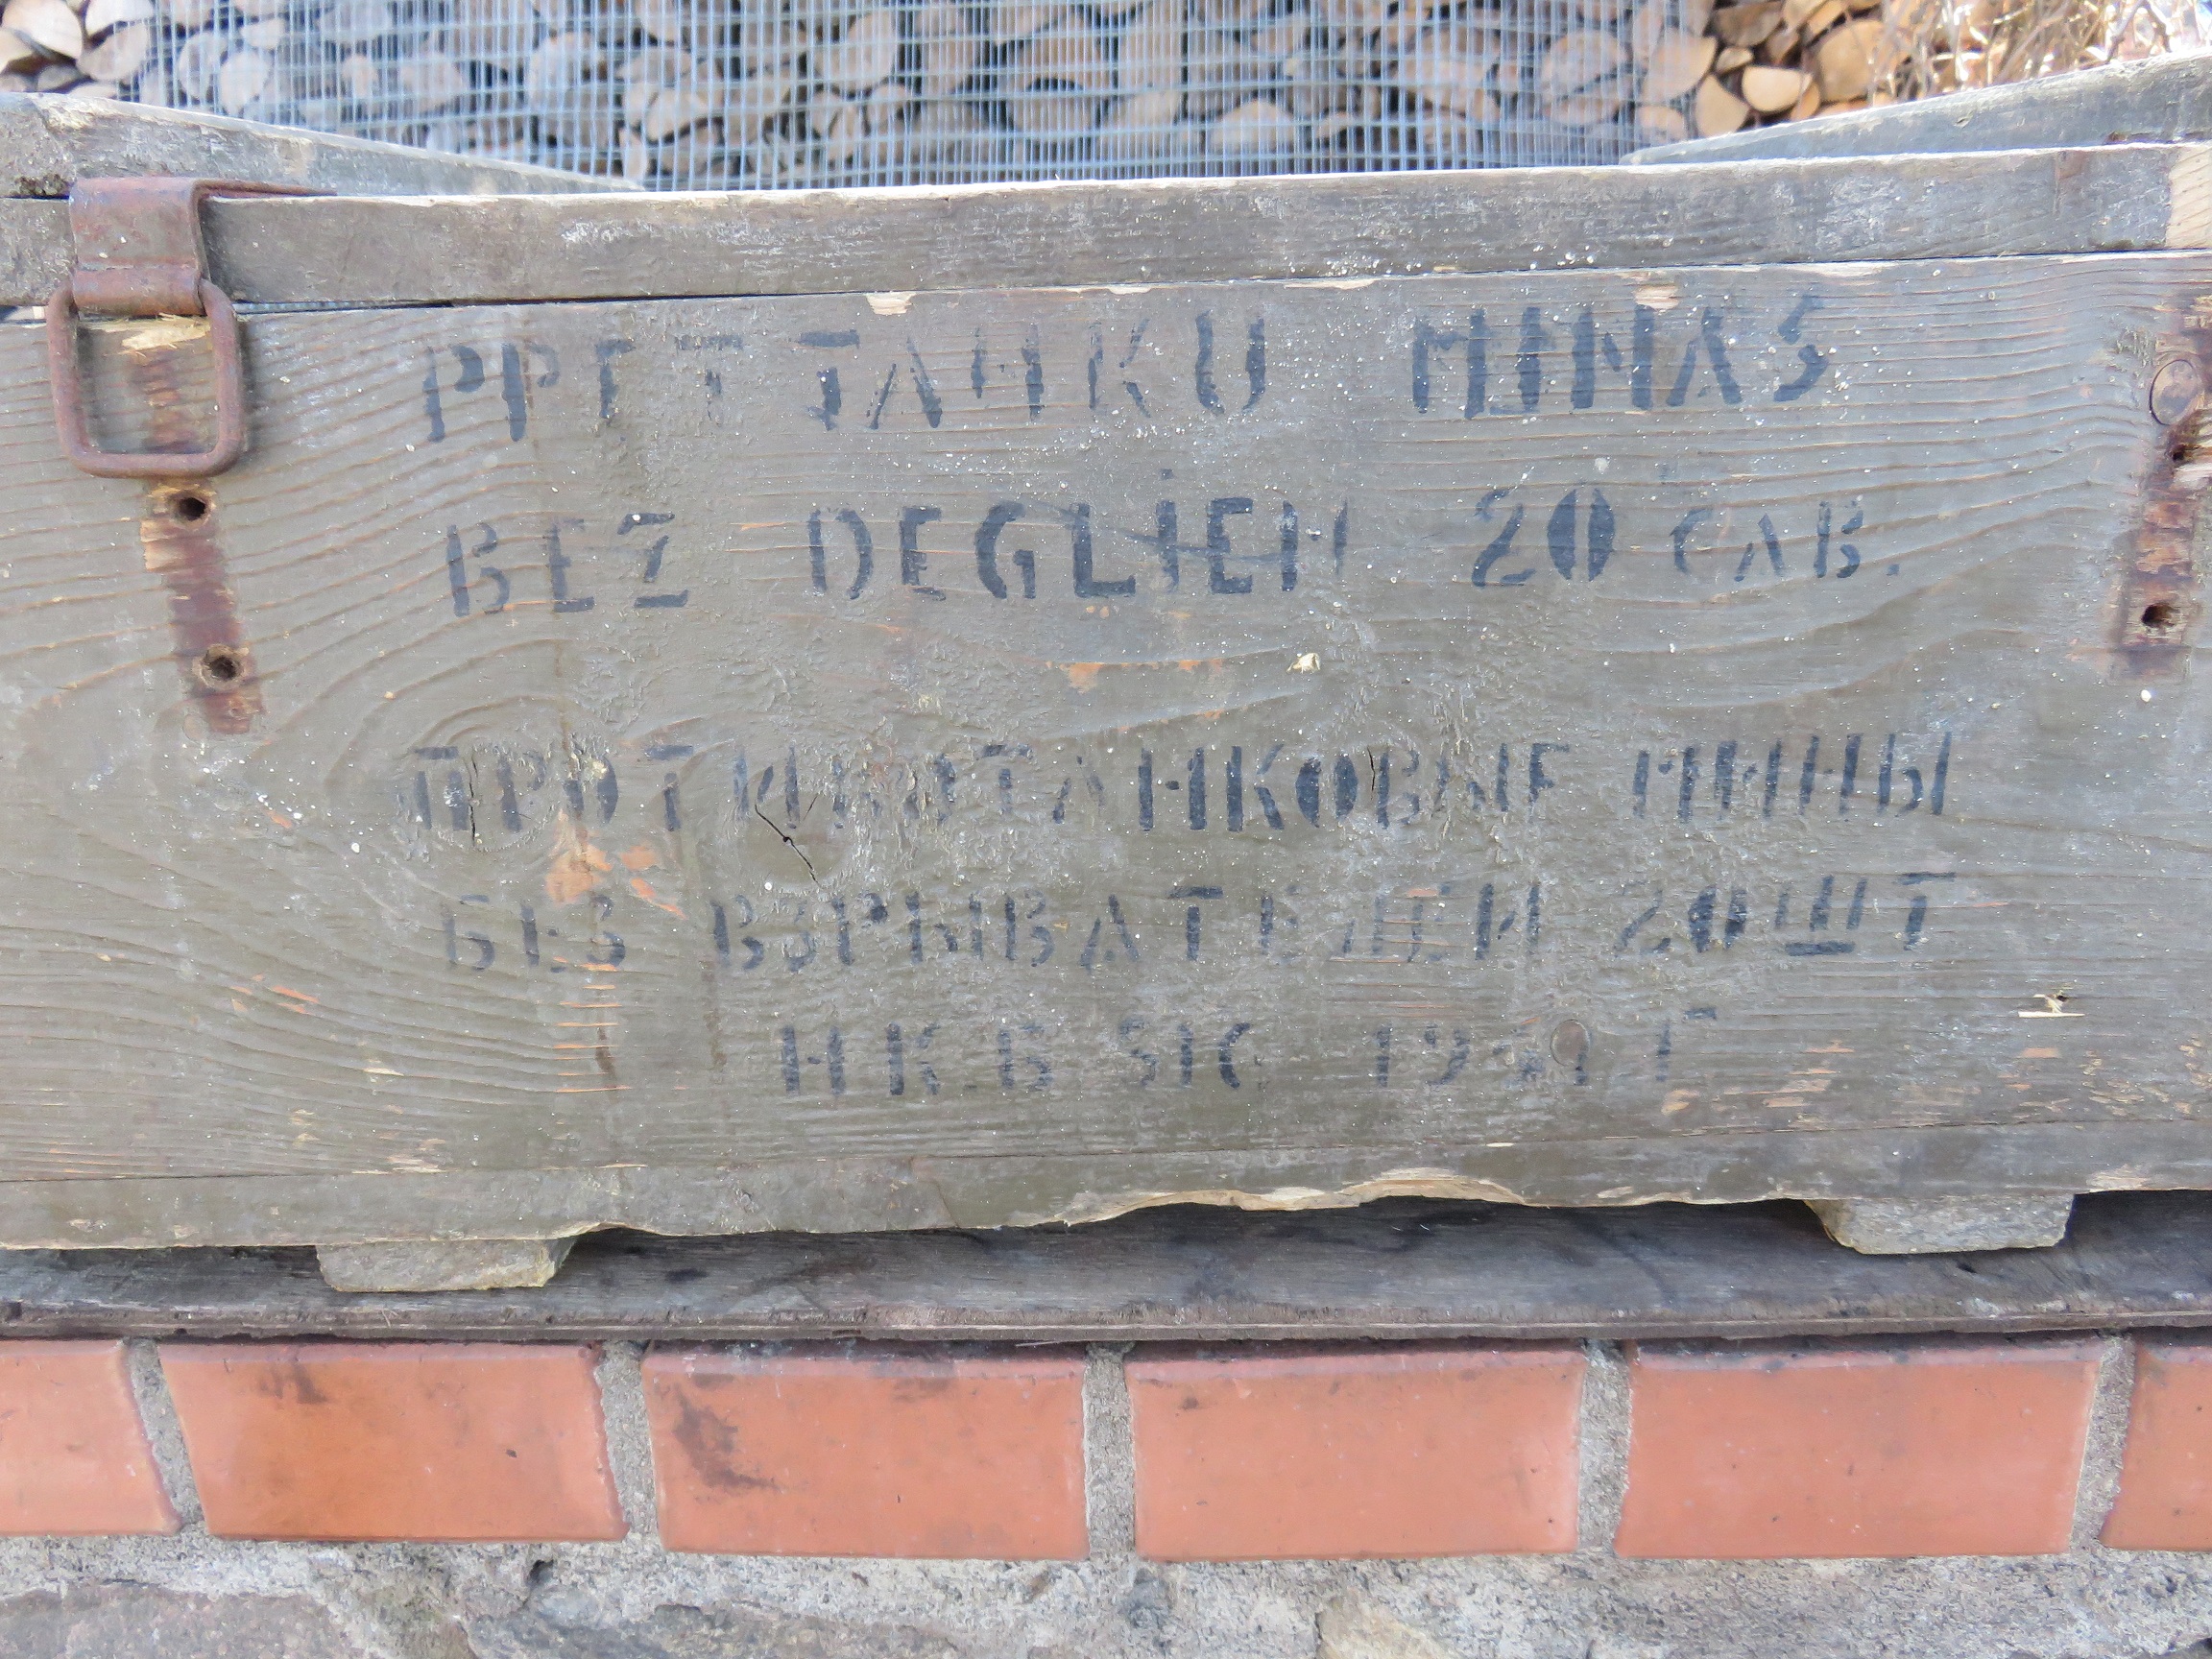 PRETTANKU MINAS
BEZ DEGLIEM 20 GAB.
ПРОТИВОТАНКОВЫЕ МИНЫ
БЕЗ ВЗРЫВАТЕЛЕЙ 20 ШТ
НКБ Г